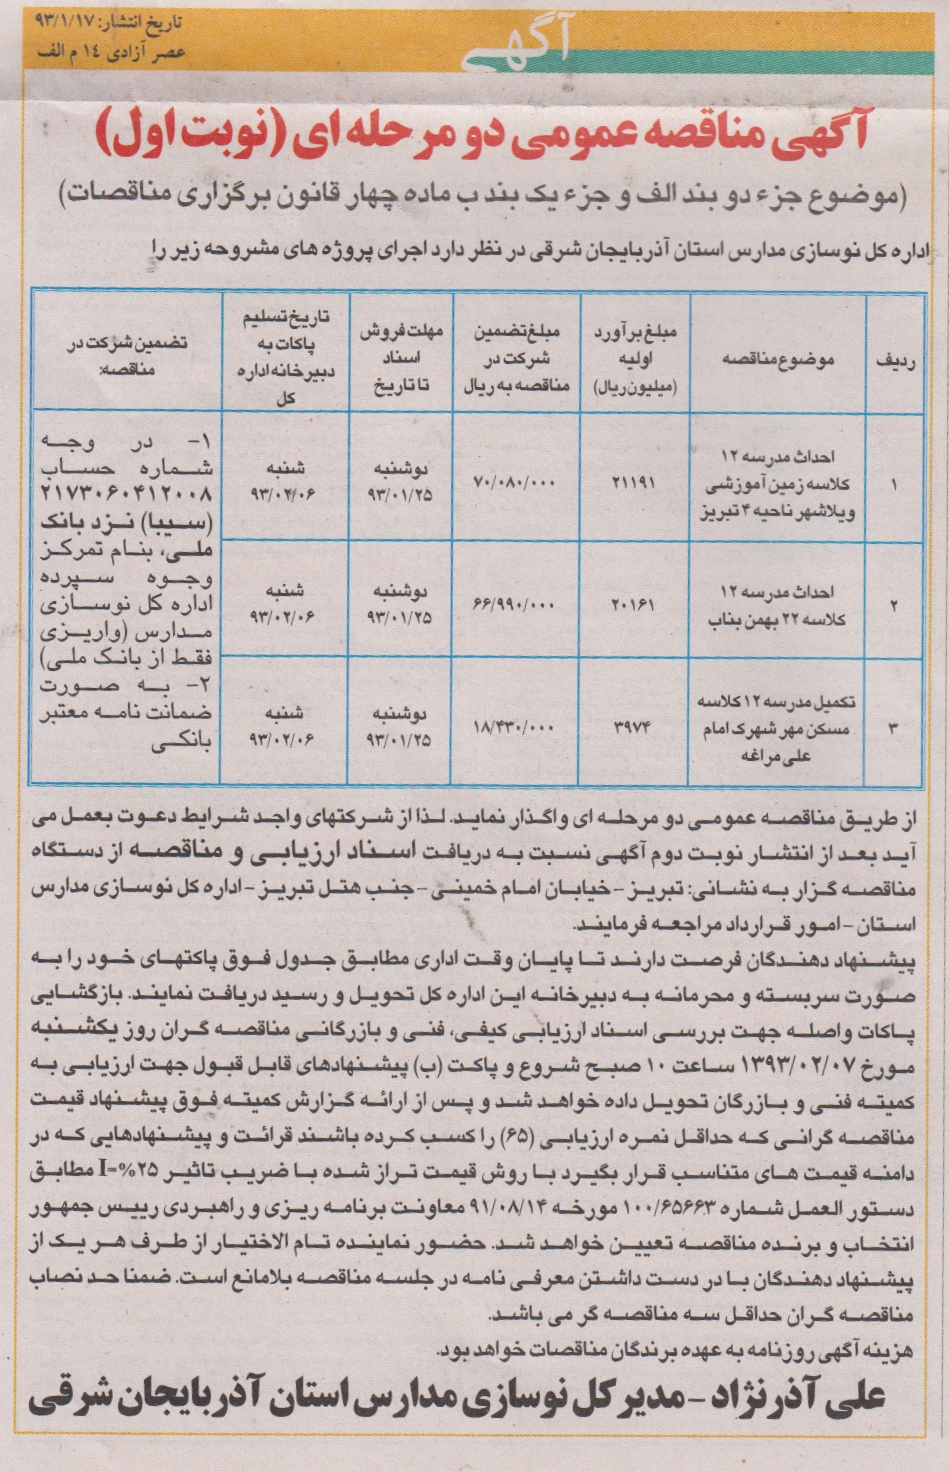 تاریخ انتشار: ۹۳/۱/۱۷
عصر آزادی ۱٤ م الف
آگهی
آگهی مناقصه عمومی دو مرحله ای (نوبت اول)
(موضوع جزء دو بند الف و جزء یک بند ب ماده چهار قانون برگزاری مناقصات)
اداره کل نوسازی مدارس استان آذربایجان شرقی در نظر دارد اجرای پروژه های مشروحه زیر را
ردیف
موضوع مناقصه
مبلغ برآورد
اولیه
(میلیون ریال)
مبلغ تضمین
شرکت در
مناقصه به ریال
مهلت فروش
اسناد
تا تاریخ
تاریخ تسلیم
پاکات به
دبیرخانه اداره
کل
تضمین شرکت در
مناقصه:
۱
احداث مدرسه ۱۲
کلاسه زمین آموزشی
ویلاشهر ناحیه ۴ تبریز
۲۱۱۹۱
۷۰/۰۸۰/۰۰۰
دوشنبه
۹۳/۰۱/۲۵
شنبه
۹۳/۰۲/۰۶
۲
احداث مدرسه ۱۲
کلاسه ۲۲ بهمن بناب
۲۰۱۶۱
۶۶/۹۹۰/۰۰۰
دوشنبه
۹۳/۰۱/۲۵
شنبه
۹۳/۰۲/۰۶
۳
تکمیل مدرسه ۱۲ کلاسه
مسکن مهر شهرک امام
علی مراغه
۳۹۷۴
۱۸/۴۳۰/۰۰۰
دوشنبه
۹۳/۰۱/۲۵
شنبه
۹۳/۰۲/۰۶
۱- در وجه
شماره حساب
۲۱۷۳۰۶۰۴۱۲۰۰۸
(سیبا) نزد بانک
ملی، بنام تمرکز
وجوه سپرده
اداره کل نوسازی
مدارس (واریزی
فقط از بانک ملی)
۲- به صورت
ضمانت نامه معتبر
بانکی
از طریق مناقصه عمومی دو مرحله ای واگذار نماید. لذا از شرکتهای واجد شرایط دعوت بعمل می
آید بعد از انتشار نوبت دوم آگهی نسبت به دریافت اسناد ارزیابی و مناقصه از دستگاه
مناقصه گزار به نشانی: تبریز - خیابان امام خمینی - جنب هتل تبریز - اداره کل نوسازی مدارس
استان - امور قرارداد مراجعه فرمایند.
پیشنهاد دهندگان فرصت دارند تا پایان وقت اداری مطابق جدول فوق پاکتهای خود را به
صورت سربسته و محرمانه به دبیرخانه این اداره کل تحویل و رسید دریافت نمایند. بازگشایی
پاکات واصله جهت بررسی اسناد ارزیابی کیفی، فنی و بازرگانی مناقصه گران روز یکشنبه
مورخ ۱۳۹۳/۰۲/۰۷ ساعت ۱۰ صبح شروع و پاکت (ب) پیشنهادهای قابل قبول جهت ارزیابی به
کمیته فنی و بازرگان تحویل داده خواهد شد و پس از ارائه گزارش کمیته فوق پیشنهاد قیمت
مناقصه گرانی که حداقل نمره ارزیابی (۶۵) را کسب کرده باشند قرائت و پیشنهادهایی که در
دامنه قیمت های متناسب قرار بگیرد با روش قیمت تراز شده با ضریب تاثیر ۲۵%=I مطابق
دستور العمل شماره ۱۰۰/۶۵۶۶۳ مورخه ۹۱/۰۸/۱۴ معاونت برنامه ریزی و راهبردی رییس جمهور
انتخاب و برنده مناقصه تعیین خواهد شد. حضور نماینده تام الاختیار از طرف هر یک از
پیشنهاد دهندگان با در دست داشتن معرفی نامه در جلسه مناقصه بلامانع است. ضمنا حد نصاب
مناقصه گران حداقل سه مناقصه گر می باشد.
هزینه آگهی روزنامه به عهده برندگان مناقصات خواهد بود.
علی آذرنژاد - مدیر کل نوسازی مدارس استان آذربایجان شرقی